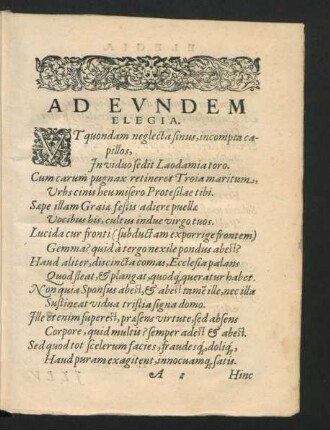 AD EVNDEM
ELEGIA.
VT quondam neglecta sinus, incompta ca-
pillos,
In viduo sedit Laodamia toro.
Cum carum pugnax retineret Troia maritum,
Vrbs cinis heu misero Protesilae tibi.
Sæpe illam Graiæ fessis adiere puellæ
Vocibus his, cultus indue virgo tuos.
Lucida cur fronti (subductam exporrige frontem)
Gemma? quid a tergo nexile pondus abest?
Haud aliter, discincta comas, Ecclesia palam
Quod fleat, & plangat, quodq́ queratur habet.
Non quia Sponsus abest, & abest tamē ille, nec illa
Sustineat vidua tristia signa domo.
Ille etenim superest, præsens virtute, sed absens
Corpore, quid multis? semper adest & abest.
Sed quod tot scelerum facies, fraudesq́, doliq́,
Haud puram exagitent, innocuamq́ satis.
A 2 Hinc